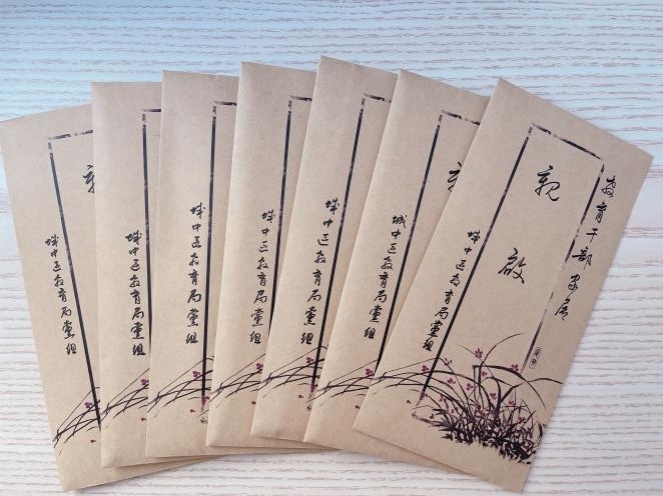 教育干部家属
亲启
城中区教育局党组
城中区教育局党组
城中区教育局党组
城中区教育局党组
城中区教育局党组
城中区教育局党组
城中区教育局党组